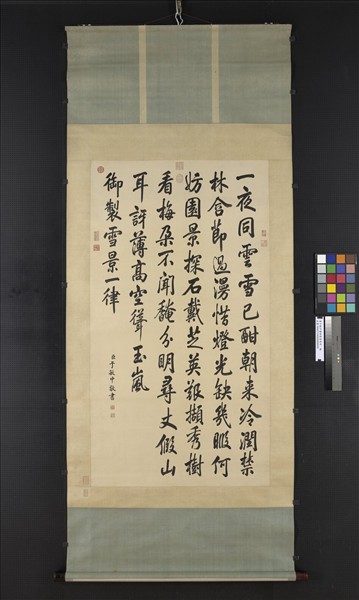 一夜同雲雪已酣朝来冷潤禁
林含節過漫惜燈光缺幾暇何
妨園景探石戴芝英艱擷秀樹
看梅朶不聞馣分明尋丈假山
耳訝薄髙空聳玉嵐
御製雪景一律
臣于敏中敬書